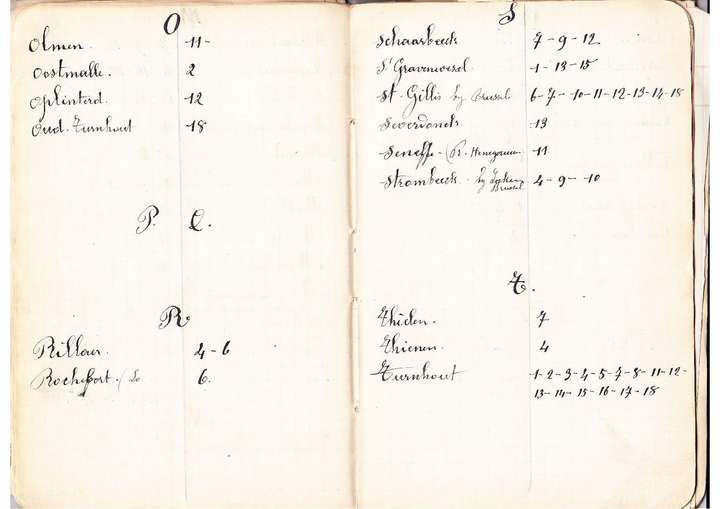 O
Olmen. 11-
Oostmalle. 2
Oplinterd. 12
Oud-Turnhout 18
P. Q.
R
Rillaer. 4-6
Rochefort. 6.
S
Schaarbeek 7-9-12
S'Gravenwesel. 1-13-15
St-Gillis by Brussel 6-7-10-11-12-13-14-18
Severdonck 13
Seneffe-(P. Henegouwen 11
Strombeek. by Brussel 4-9-10
T.
Thielen. 7
Thienen. 4
Turnhout 1-2-3-4-5-7-8-11-12-
13-14-15-16-17-18